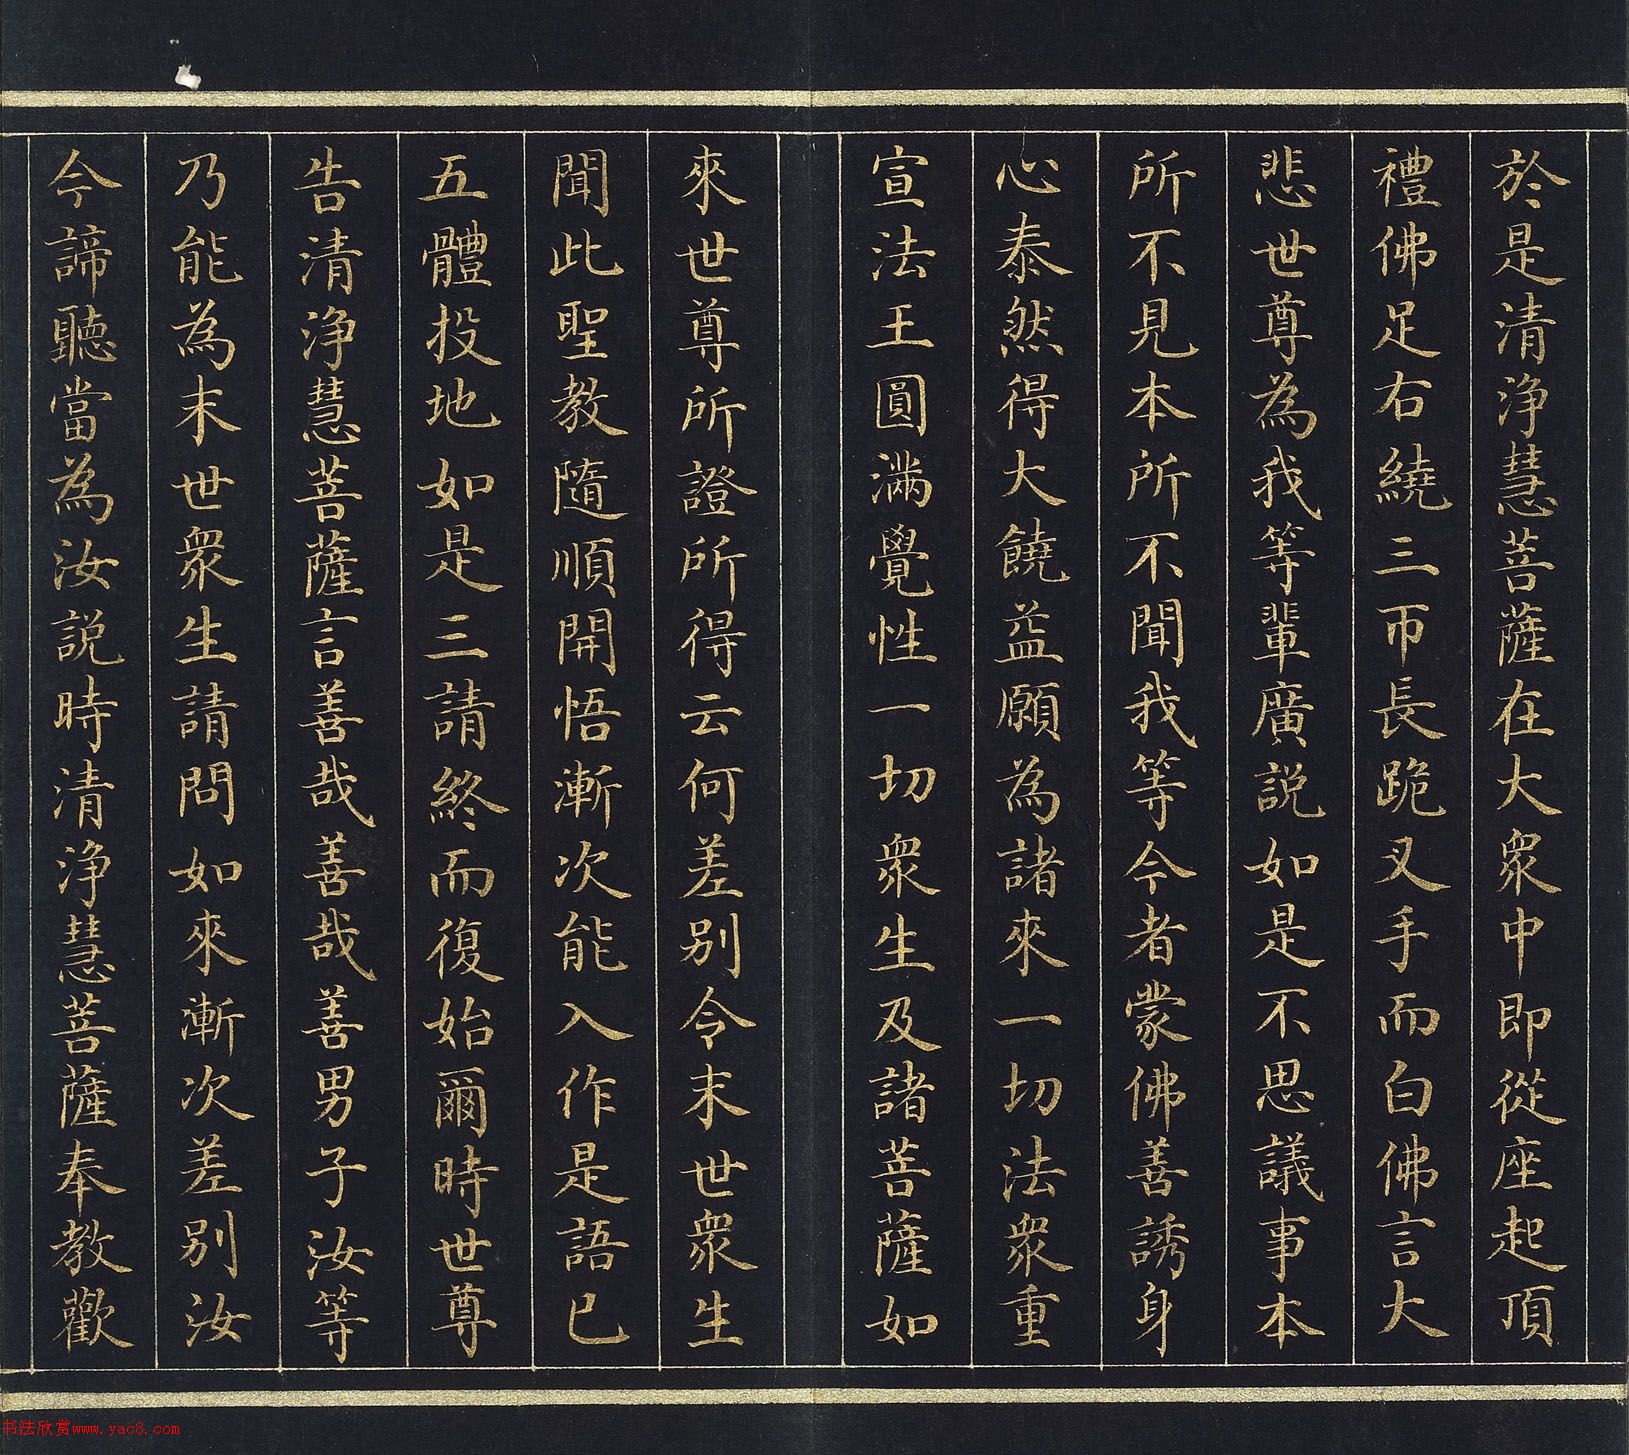 於是清淨慧菩薩在大眾中即從座起頂
禮佛足右繞三帀長跪叉手而白佛言大
悲世尊為我等輩廣説如是不思議事本
所不見本所不聞我等今者蒙佛善誘身
心泰然得大饒益願為諸來一切法衆重
宣法王圓滿覺性一切衆生及諸菩薩如
來世尊所證所得云何差别令末世衆生
聞此聖教隨順開悟漸次能入作是語已
五體投地如是三請終而復始爾時世尊
告清淨慧菩薩言善哉善哉善男子汝等
乃能為末世衆生請問如來漸次差别汝
今諦聽當為汝説時清淨慧菩薩奉教歡
书法欣赏www.yac8.com